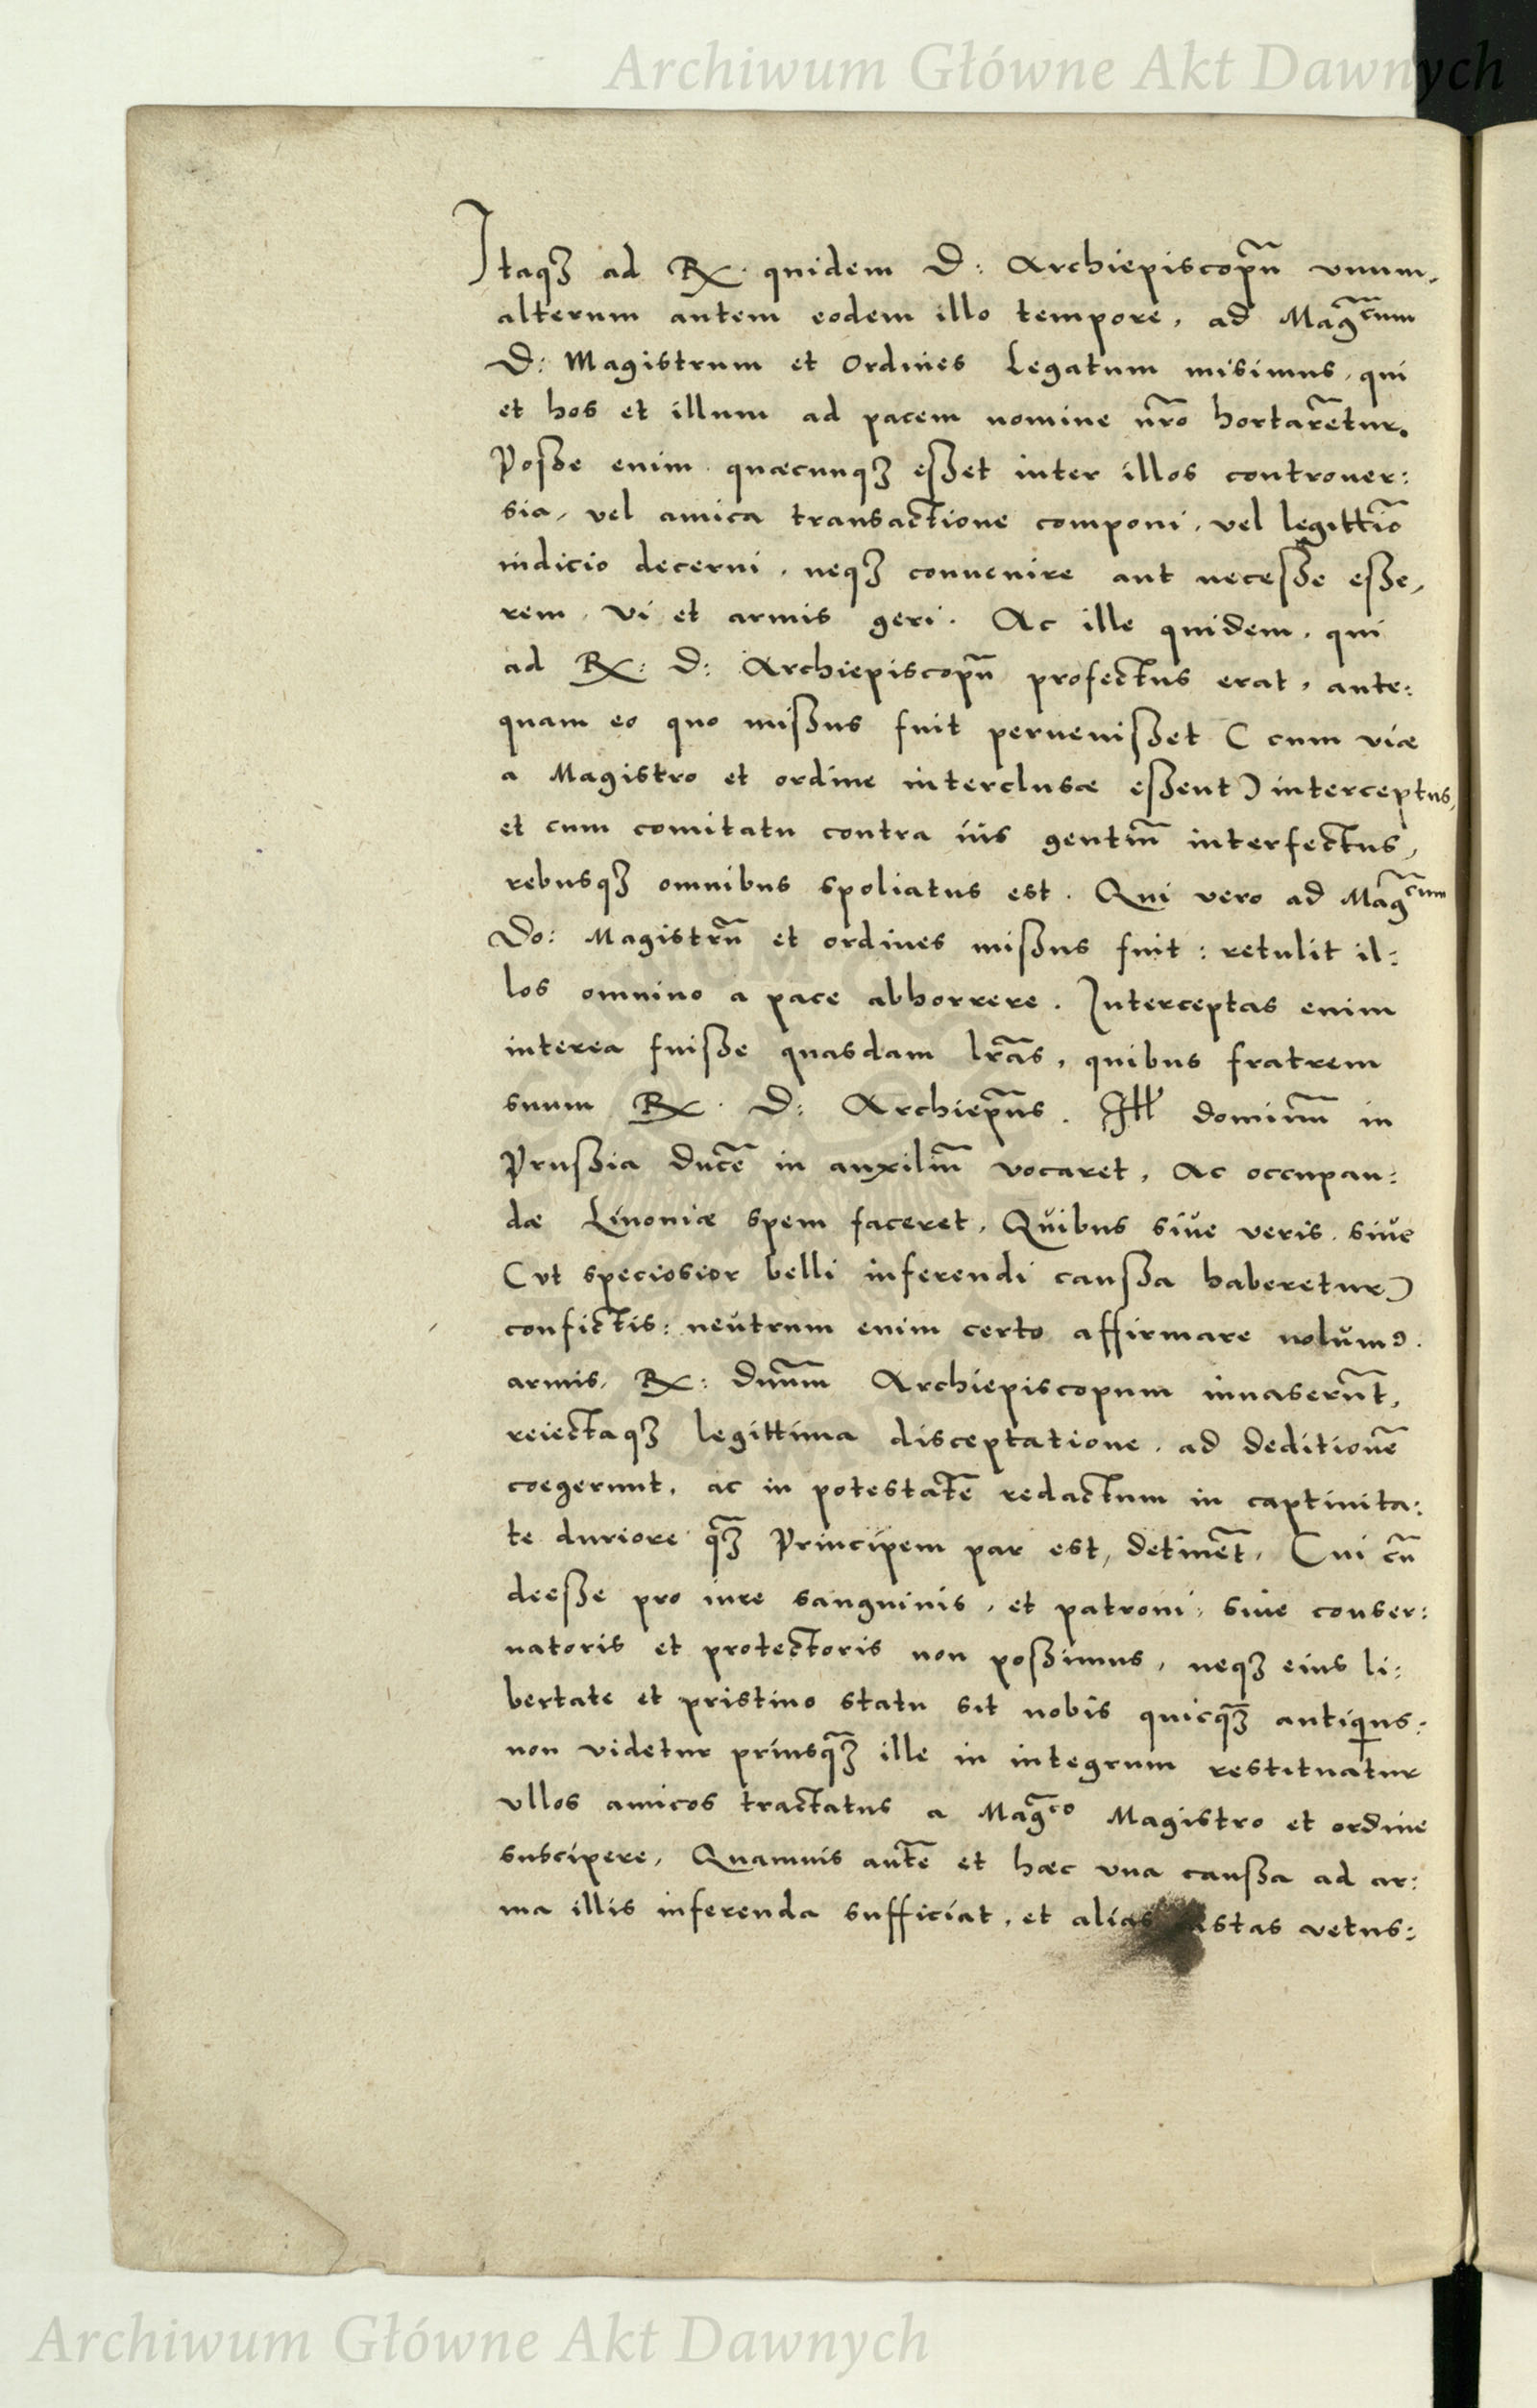 Archiwum Główne Akt Dawnych
Itaqꝫ ad Rx. quidem D: Archiepiscopũ vnum,
alterum autem eodem illo tempore, ad Mag̃cum
D: Magistrum et Ordines Legatum misimus, qui
et hos et illum ad pacem nomine nr̃o hortarẽtur.
Posße enim quæcunqꝫ esßet inter illos controuer:
sia, vel amica transactione componi, vel legittĩo
iudicio decerni, neqꝫ conuenire aut necesße esße,
rem vi et armis geri. Ac ille quidem, qui
ad Rx: D: Archiepiscopũ profectus erat, ante:
quam eo quo misßus fuit peruenisßet (cum viæ
a Magistro et ordine interclusæ esßent) interceptus,
et cum comitatu contra ius gentiũ interfectus,
rebusqꝫ omnibus spoliatus est. Qui vero ad Mag̃cum
Do: Magistrũ et ordines misßus fuit: retulit il:
los omnino a pace abhorrere. Interceptas enim
interea fuisße quasdam lr̃as, quibus fratrem
suum Rx. D: Archiep̃us. Ill dominũ in
Prusßia ducẽ in auxiliũ vocaret, Ac occupan:
dæ Liuoniæ spem faceret, Quibus siue veris siue
(vt speciosior belli inferendi causßa haberetur)
confictis: neutrum enim certo affirmare volumꝰ.
armis, Rx: dnũm Archiepiscopum inuaserũt,
reiectaqꝫ legittima disceptatione, ad deditionẽ
coegerunt, ac in potestatẽ redactum in captiuita:
te duriore q̃ꝫ Principem par est, detinẽt, Cui cũ
deesße pro iure sanguinis, et patroni, siue conser:
uatoris et protectoris non posßimus, neqꝫ eius li:
bertate et pristino statu sit nobis quicq̃ꝫ antiqius:
non videtur priusq̃ꝫ ille in integrum restituatur
vllos amicos tractatus a Mag̃co Magistro et ordine
suscipere, Quamuis autẽ et hæc vna causßa ad ar:
ma illis inferenda sufficiat, et alias vetus:
Archiwum Główne Akt Dawnych